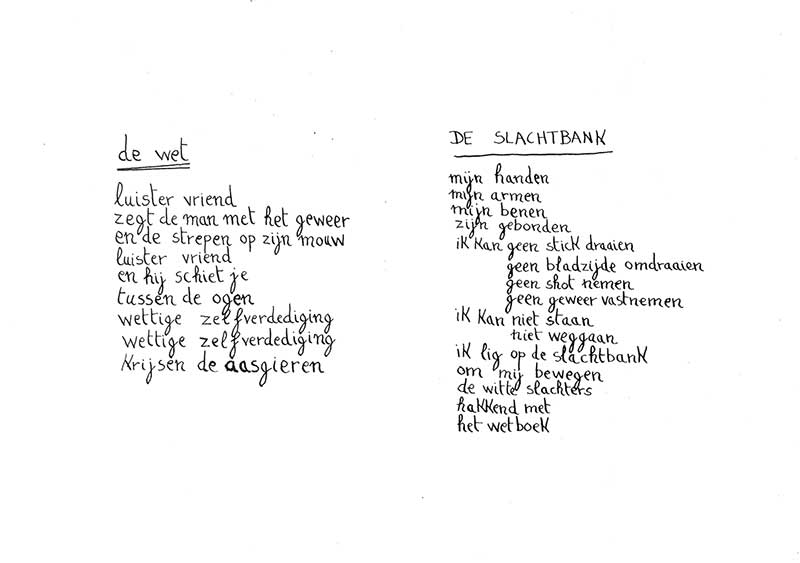 de wet
luister vriend
zegt de man met het geweer
en de strepen op zijn mouw
luister vriend
en hij schiet je
tussen de ogen
wettige zelfverdediging
wettige zelfverdediging
krijsen de aasgieren
DE SLACHTBANK
mijn handen
mijn armen
mijn benen
zijn gebonden
ik kan geen stick draaien
geen bladzijde omdraaien
geen shot nemen
geen geweer vastnemen
ik kan niet staan
niet weggaan
ik lig op de slachtbank
om mij bewegen
de witte slachters
hakkend met
het wetboek